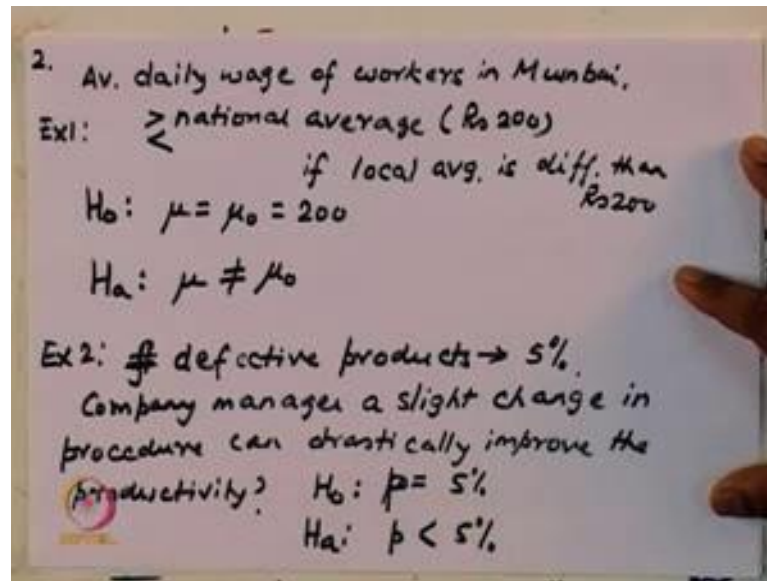 2. Av. daily wage of workers in Mumbai.
Ex1: ≷ national average (Rs 200)
if local avg. is diff. than
Rs200
H₀: μ = μ₀ = 200
Hₐ: μ ≠ μ₀
Ex2: # defective products → 5%.
Company manager a slight change in
procedure can drastically improve the
productivity? H₀: p = 5%
Hₐ: p < 5%